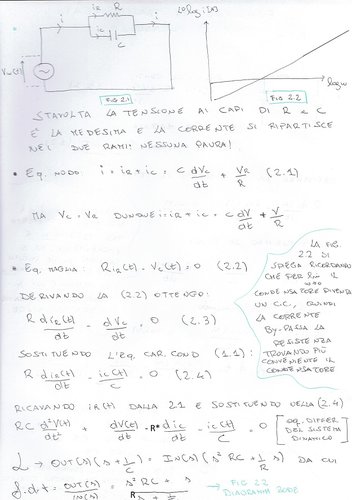 iR R
20 log |i| [A]
i
i
ic C
Vin(t)
FIG 2.1
log ω
FIG 2.2
STAVOLTA LA TENSIONE AI CAPI DI R e C
E' LA MEDESIMA E LA CORRENTE SI RIPARTISCE
NEI DUE RAMI: NESSUNA PAURA!
• EQ. NODO: i = iR + iC = C dVc/dt + VR/R (2.1)
MA Vc = VR DUNQUE: i = iR + iC = C dV/dt + V/R
• EQ. MAGLIA: R iR(t) - Vc(t) = 0 (2.2)
DERIVANDO LA (2.2) OTTENGO:
R diR(t)/dt - dVc/dt = 0 (2.3)
SOSTITUENDO L'EQ. CAR. COND (1.1):
R diR(t)/dt - ic(t)/C = 0 (2.4)
LA FIG.
2.2 SI
SPIEGA RICORDANDO
CHE PER lim
CONDENSATORE DIVENTA
UN C.C., QUINDI
LA CORRENTE
BY-PASSA LA
RESISTENZA
TROVANDO PIÙ
CONVENIENTE IL
CONDENSATORE
RICAVANDO iR(t) DALLA 2.1 E SOSTITUENDO NELLA (2.4)
RC d²V(t)/dt² + dV(t)/dt - R* dic/dt - ic(t)/C = 0 [EQ. DIFFER. DEL SISTEMA DINAMICO]
L → OUT(s)(s + 1/C) = IN(s)(s² RC + 1/R s) DA CUI
f.d.t = OUT(s)/IN(s) = s² RC + s
R s + 1/C
→ FIG 2.2
DIAGRAMMI BODE